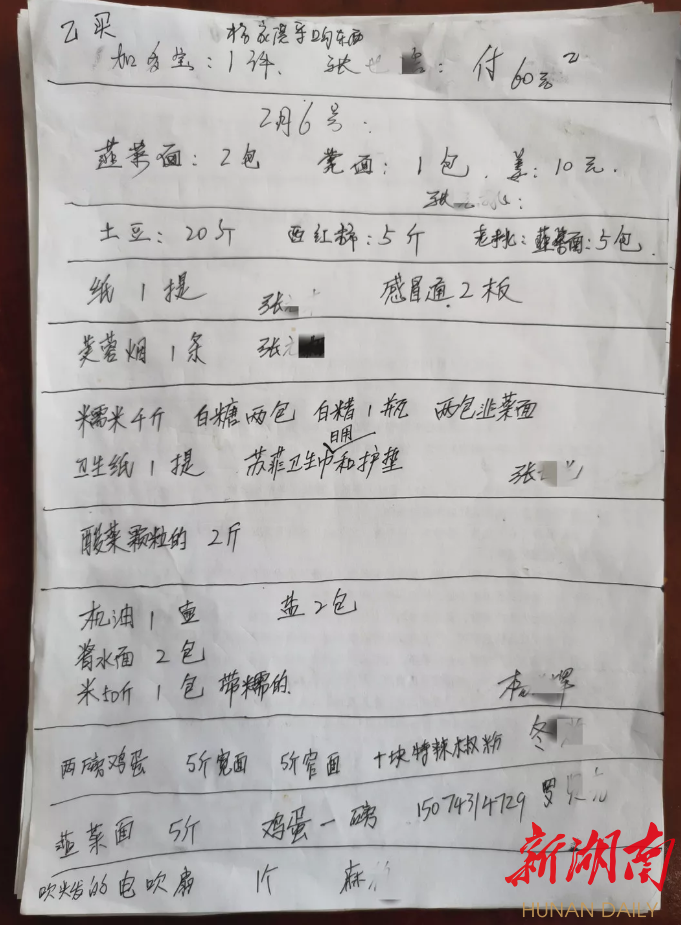 已买 杨家湾买的东西
加多宝：1件、 张 ：付60元
2月6号.
韭菜面：2包 宽面：1包. 姜：10元.
张
土豆：20斤 西红柿：5斤 韭菜面：5包.
纸1提 张 感冒通2板
芙蓉烟1条 张
糯米4斤 白糖两包 白糖1瓶 两包韭菜面
日用
卫生纸1提 苏菲卫生巾和护垫 张
酸菜颗粒的 2斤
机油1壶 盐2包
着水面2包
米50斤1包 带糯的.
两磅鸡蛋 5斤宽面 5斤窄面 十块特辣椒粉 冬
韭菜面 5斤 鸡蛋一磅 15074314729 罗
吹头发的电吹扇 1个
新湖南
HUNAN DAILY